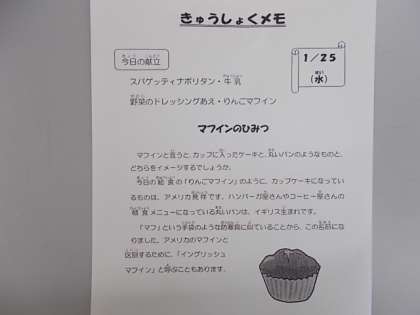 きゅうしょくメモ
今日の献立
1/25
(水)
スパゲッティナポリタン・牛乳
野菜のドレッシングあえ・りんごマフィン
マフィンのひみつ
マフィンと言うと、カップに入ったケーキと、丸いパンのようなものと、
どちらをイメージするでしょうか。
今日の給食の「りんごマフィン」のように、カップケーキになってい
るものは、アメリカ発祥です。ハンバーガ屋さんやコーヒー屋さんの
朝食メニューになっている丸いパンは、イギリス生まれです。
「マフ」という手袋のような防寒具に似ていることから、この名前にな
りました。アメリカのマフィンと
区別するために、「イングリッシュ
マフィン」と呼ぶこともあります。